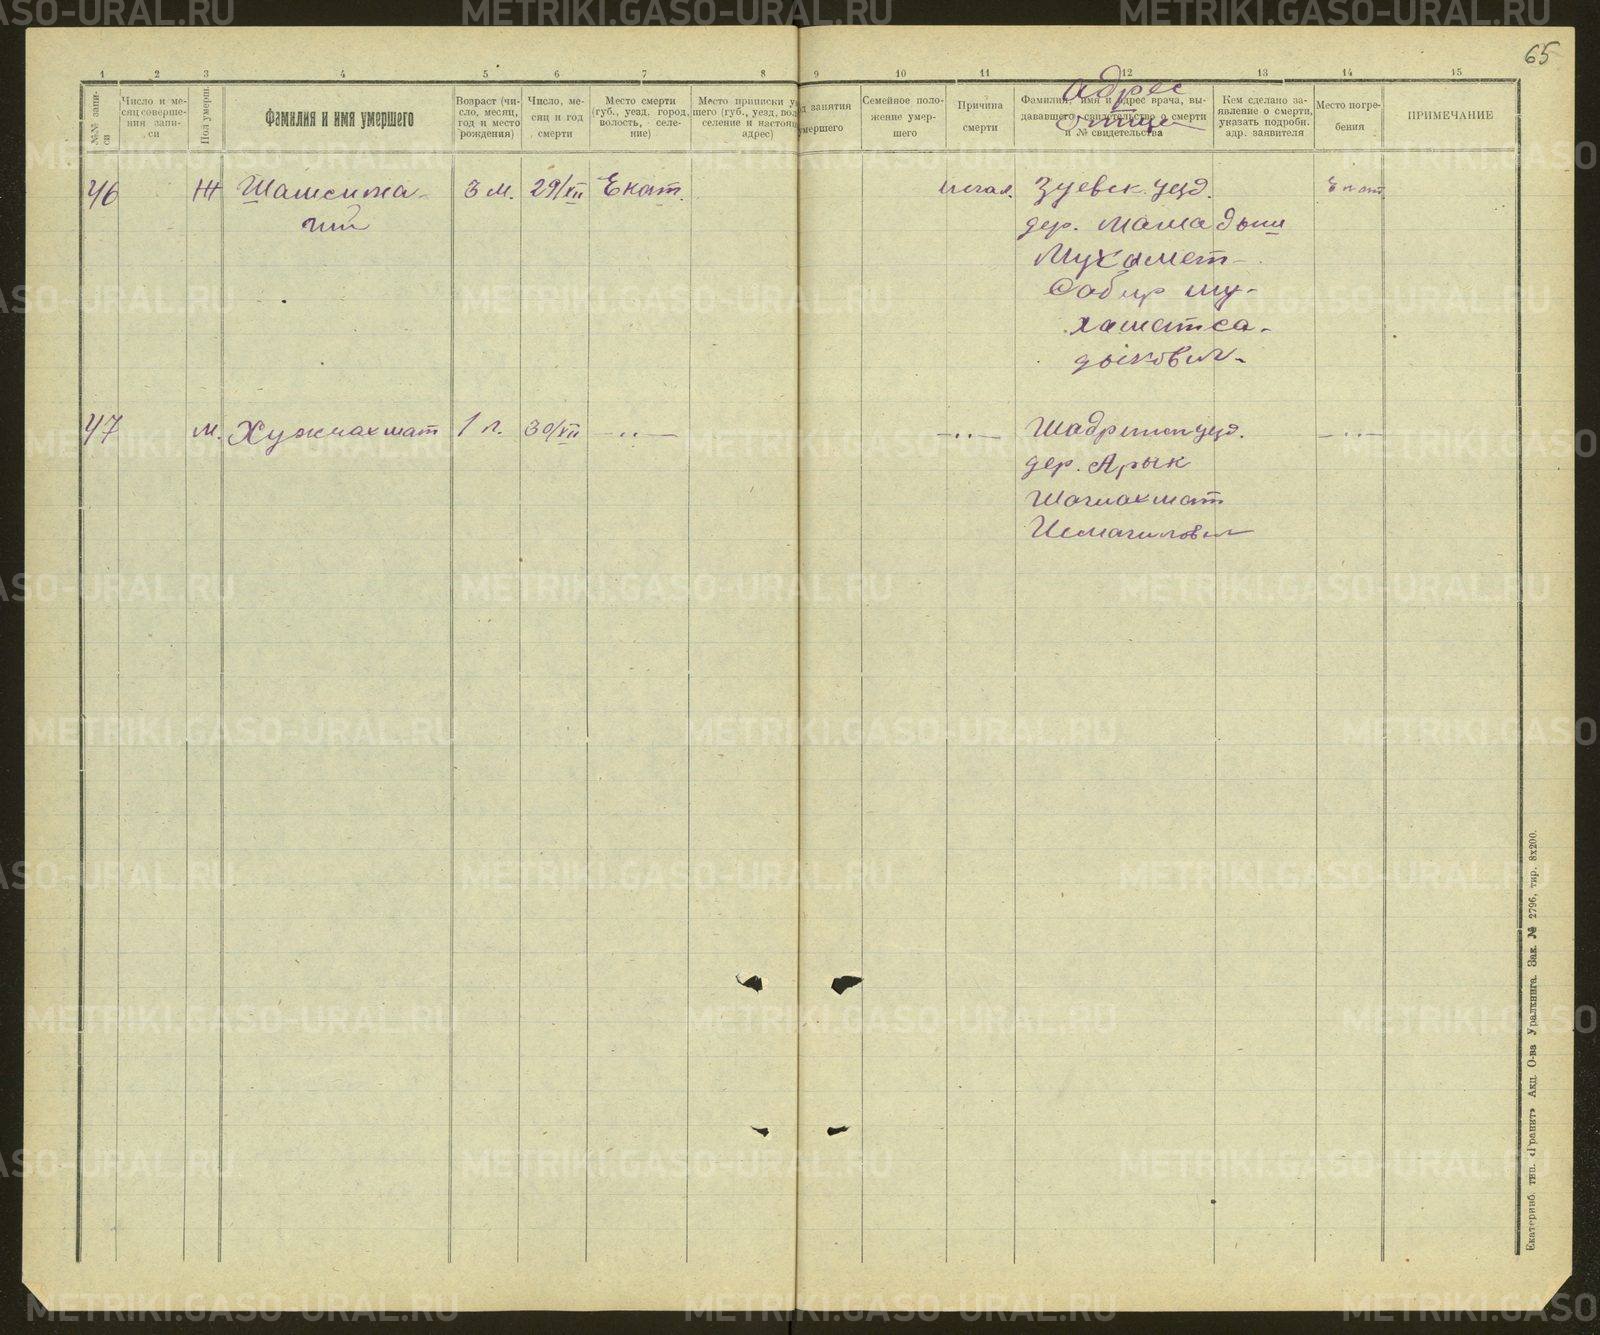 65
1 2 3 4 5 6 7 8 9 10 11 12 13 14 15
№№ запи-
си
Число и ме-
сяц соверше-
ния запи-
си
Пол умерш.
Фамилия и имя умершего
Возраст (чи-
сло, месяц,
год и место
рождения)
Число, ме-
сяц и год
смерти
Место смерти
(губ., уезд, город,
волость, селе-
ние)
Место приписки у
шего (губ., уезд, вол
селение и настоящ
адрес)
д занятия
умершего
Семейное поло-
жение умер-
шего
Причина
смерти
Фамилия, имя и адрес врача, вы-
дававшего свидетельство о смерти
и № свидетельства
Адрес
Кем сделано за-
явление о смерти,
указать подробн.
адр. заявителя
Место погре-
бения
ПРИМЕЧАНИЕ
46 Ж Шамсижа- 3 м. 29/XII Екат. Зуевск. уезд. Екат.
дер. Мамадыш
Мухамет-
Сабир Му-
хаматса-
дыкович
47 м. Хужиахмат 1 г. 30/XII —··— —··— Шадринск уезд. —··—
дер. Арык
Шагиахмат
Исмагилович
Екатеринб. тип. «Гранит» Акц. О-ва Уралкнига. Зак. № 2796, тир. 8х200.
METRIKI.GASO-URAL.RU